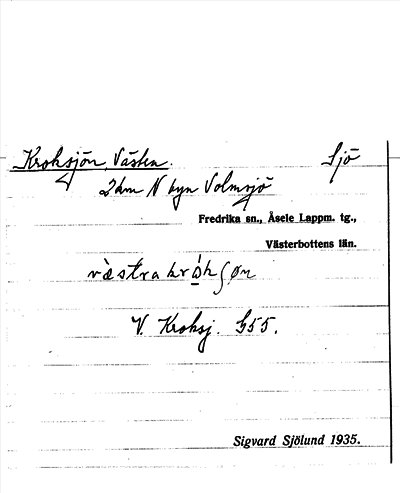 Kroksjön, Västra. Sjö
2 km N byn Volmsjö
Fredrika sn., Åsele Lappm. tg.,
Västerbottens län.
V. Kroksj. G55.
Sigvard Sjölund 1935.